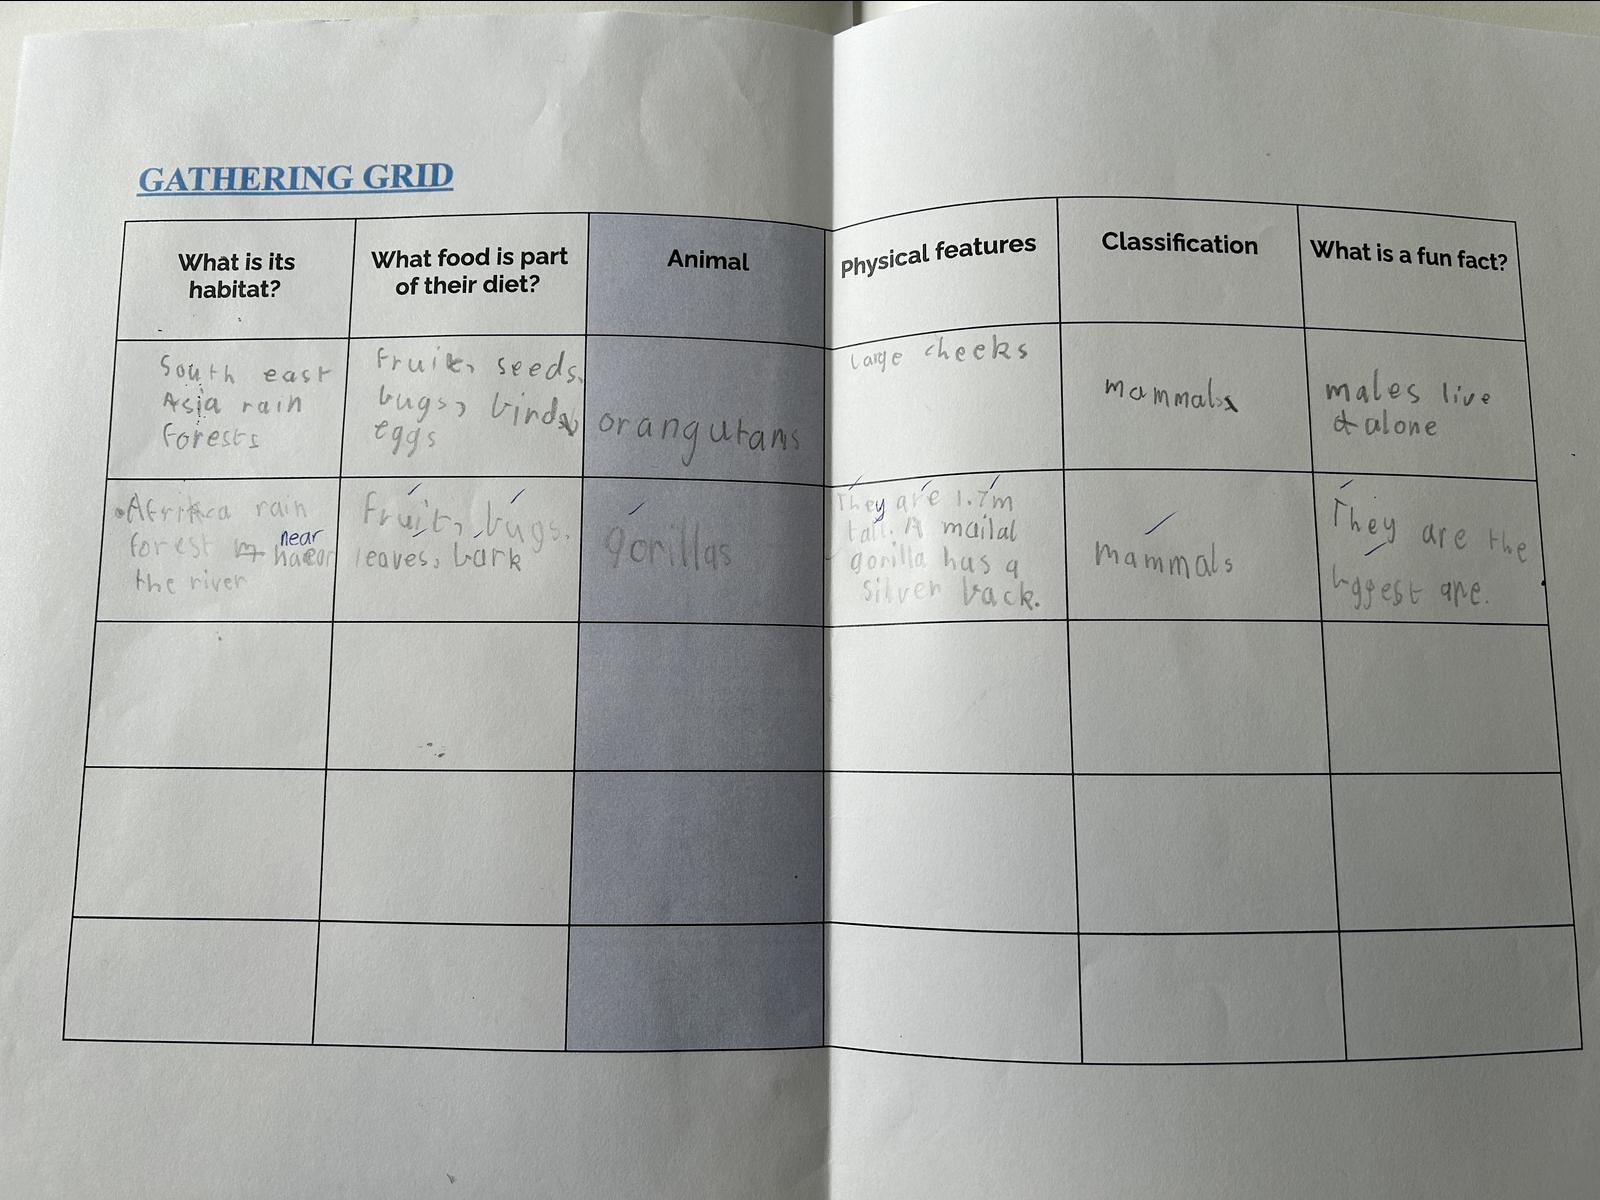 GATHERING GRID
What is its
habitat?
What food is part
of their diet?
Animal
Physical features
Classification
What is a fun fact?
South east
Asia rain
forests
fruit, seeds,
bugs, birds,
eggs
orangutans
large cheeks
mammals
males live
alone
rain
forest near
the river
fruit, bugs,
leaves, bark
gorillas
They are 1.7m
tall. A mailal
gorilla has a
silver back.
mammals
They are the
bggest ape.